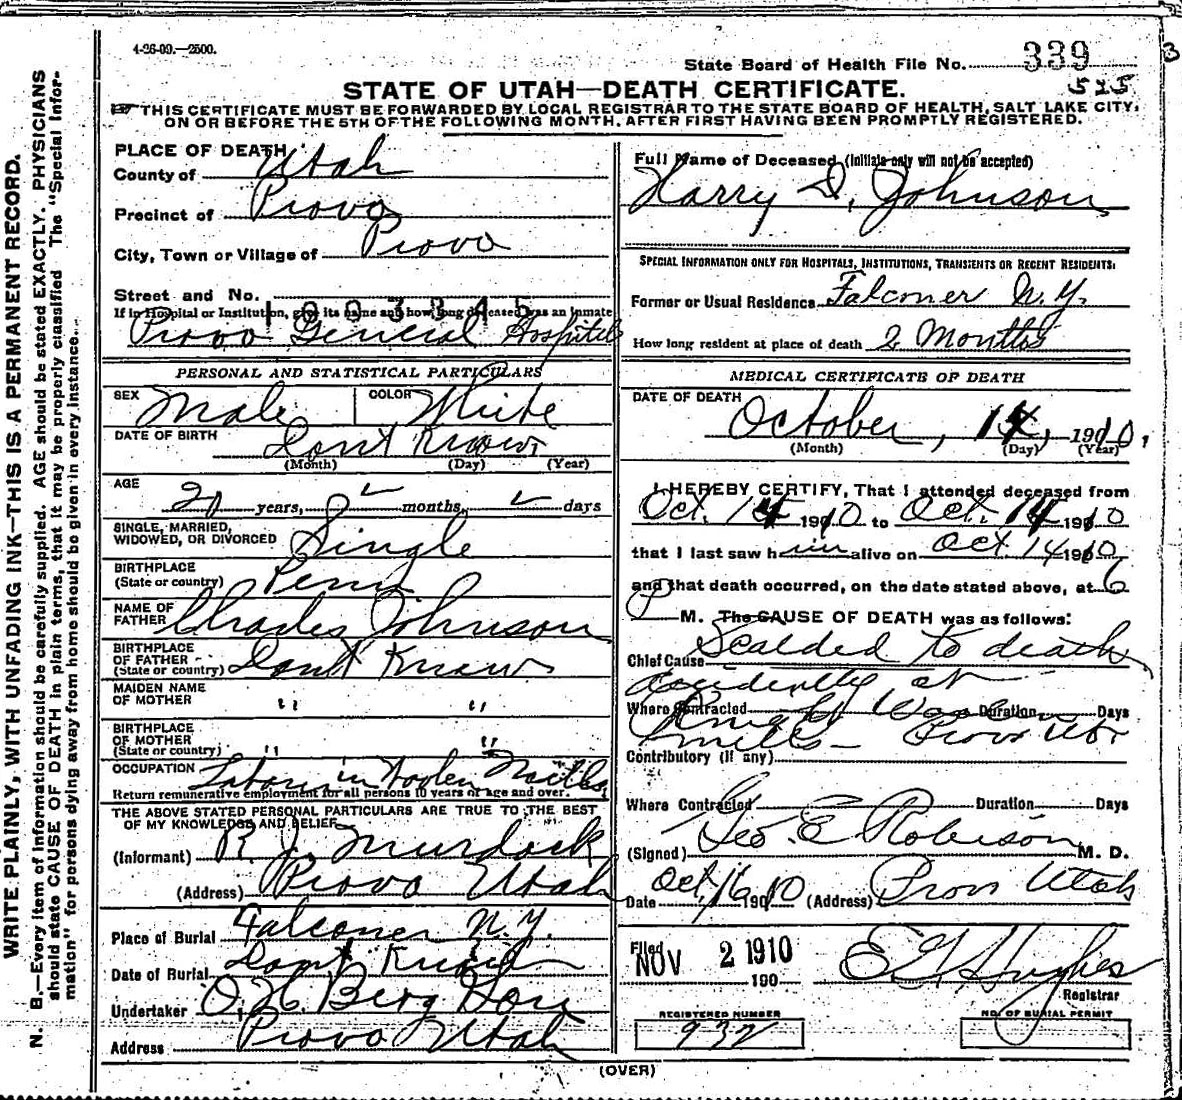 4-26-09.—2500.
State Board of Health File No. 339
525
STATE OF UTAH—DEATH CERTIFICATE.
THIS CERTIFICATE MUST BE FORWARDED BY LOCAL REGISTRAR TO THE STATE BOARD OF HEALTH, SALT LAKE CITY,
ON OR BEFORE THE 5TH OF THE FOLLOWING MONTH, AFTER FIRST HAVING BEEN PROMPTLY REGISTERED.
WRITE PLAINLY, WITH UNFADING INK—THIS IS A PERMANENT RECORD.
N. B.—Every item of information should be carefully supplied. AGE should be stated EXACTLY. PHYSICIANS
should state CAUSE OF DEATH in plain terms, that it may be properly classified. The "Special Infor-
mation" for persons dying away from home should be given in every instance.
PLACE OF DEATH
County of Utah
Precinct of Provo
City, Town or Village of Provo
Street and No.
If in Hospital or Institution, give its name and how long deceased was an inmate
Provo General Hospital
PERSONAL AND STATISTICAL PARTICULARS
SEX Male COLOR White
DATE OF BIRTH Dont Know
(Month) (Day) (Year)
AGE
years, months, days
SINGLE, MARRIED,
WIDOWED, OR DIVORCED Single
BIRTHPLACE
(State or country) Penn
NAME OF
FATHER Charles Johnson
BIRTHPLACE
OF FATHER
(State or country) Dont Know
MAIDEN NAME
OF MOTHER " "
BIRTHPLACE
OF MOTHER
(State or country) " "
OCCUPATION Labor in Woolen Mills
Return remunerative employment for all persons 10 years of age and over.
THE ABOVE STATED PERSONAL PARTICULARS ARE TRUE TO THE BEST
OF MY KNOWLEDGE AND BELIEF
(Informant) R. J. Murdock
(Address) Provo Utah
Place of Burial Falconer N.Y.
Date of Burial Dont Know
Undertaker O. H. Berg
Address Provo Utah
Full Name of Deceased (Initials only will not be accepted)
Harry D. Johnson
SPECIAL INFORMATION ONLY FOR HOSPITALS, INSTITUTIONS, TRANSIENTS OR RECENT RESIDENTS:
Former or Usual Residence Falconer N.Y.
How long resident at place of death 2 Months
MEDICAL CERTIFICATE OF DEATH
DATE OF DEATH
October, 14, 1910,
(Month) (Day) (Year)
I HEREBY CERTIFY, That I attended deceased from
Oct. 14 1910 to Oct. 14 1910
that I last saw him alive on Oct 14 1910
and that death occurred, on the date stated above, at 6
P M. The CAUSE OF DEATH was as follows:
Chief Cause Scalded to death
accidently at
Where Contracted Knight Woolen Duration Days
mills - Provo Utah
Contributory (if any)
Where Contracted Duration Days
(Signed) Geo. E Robison M. D.
Date Oct, 16 1910 (Address) Provo Utah
Filed
NOV 2 1910
190
E G Hughes
Registrar
REGISTERED NUMBER
932
NO. OF BURIAL PERMIT
(OVER)